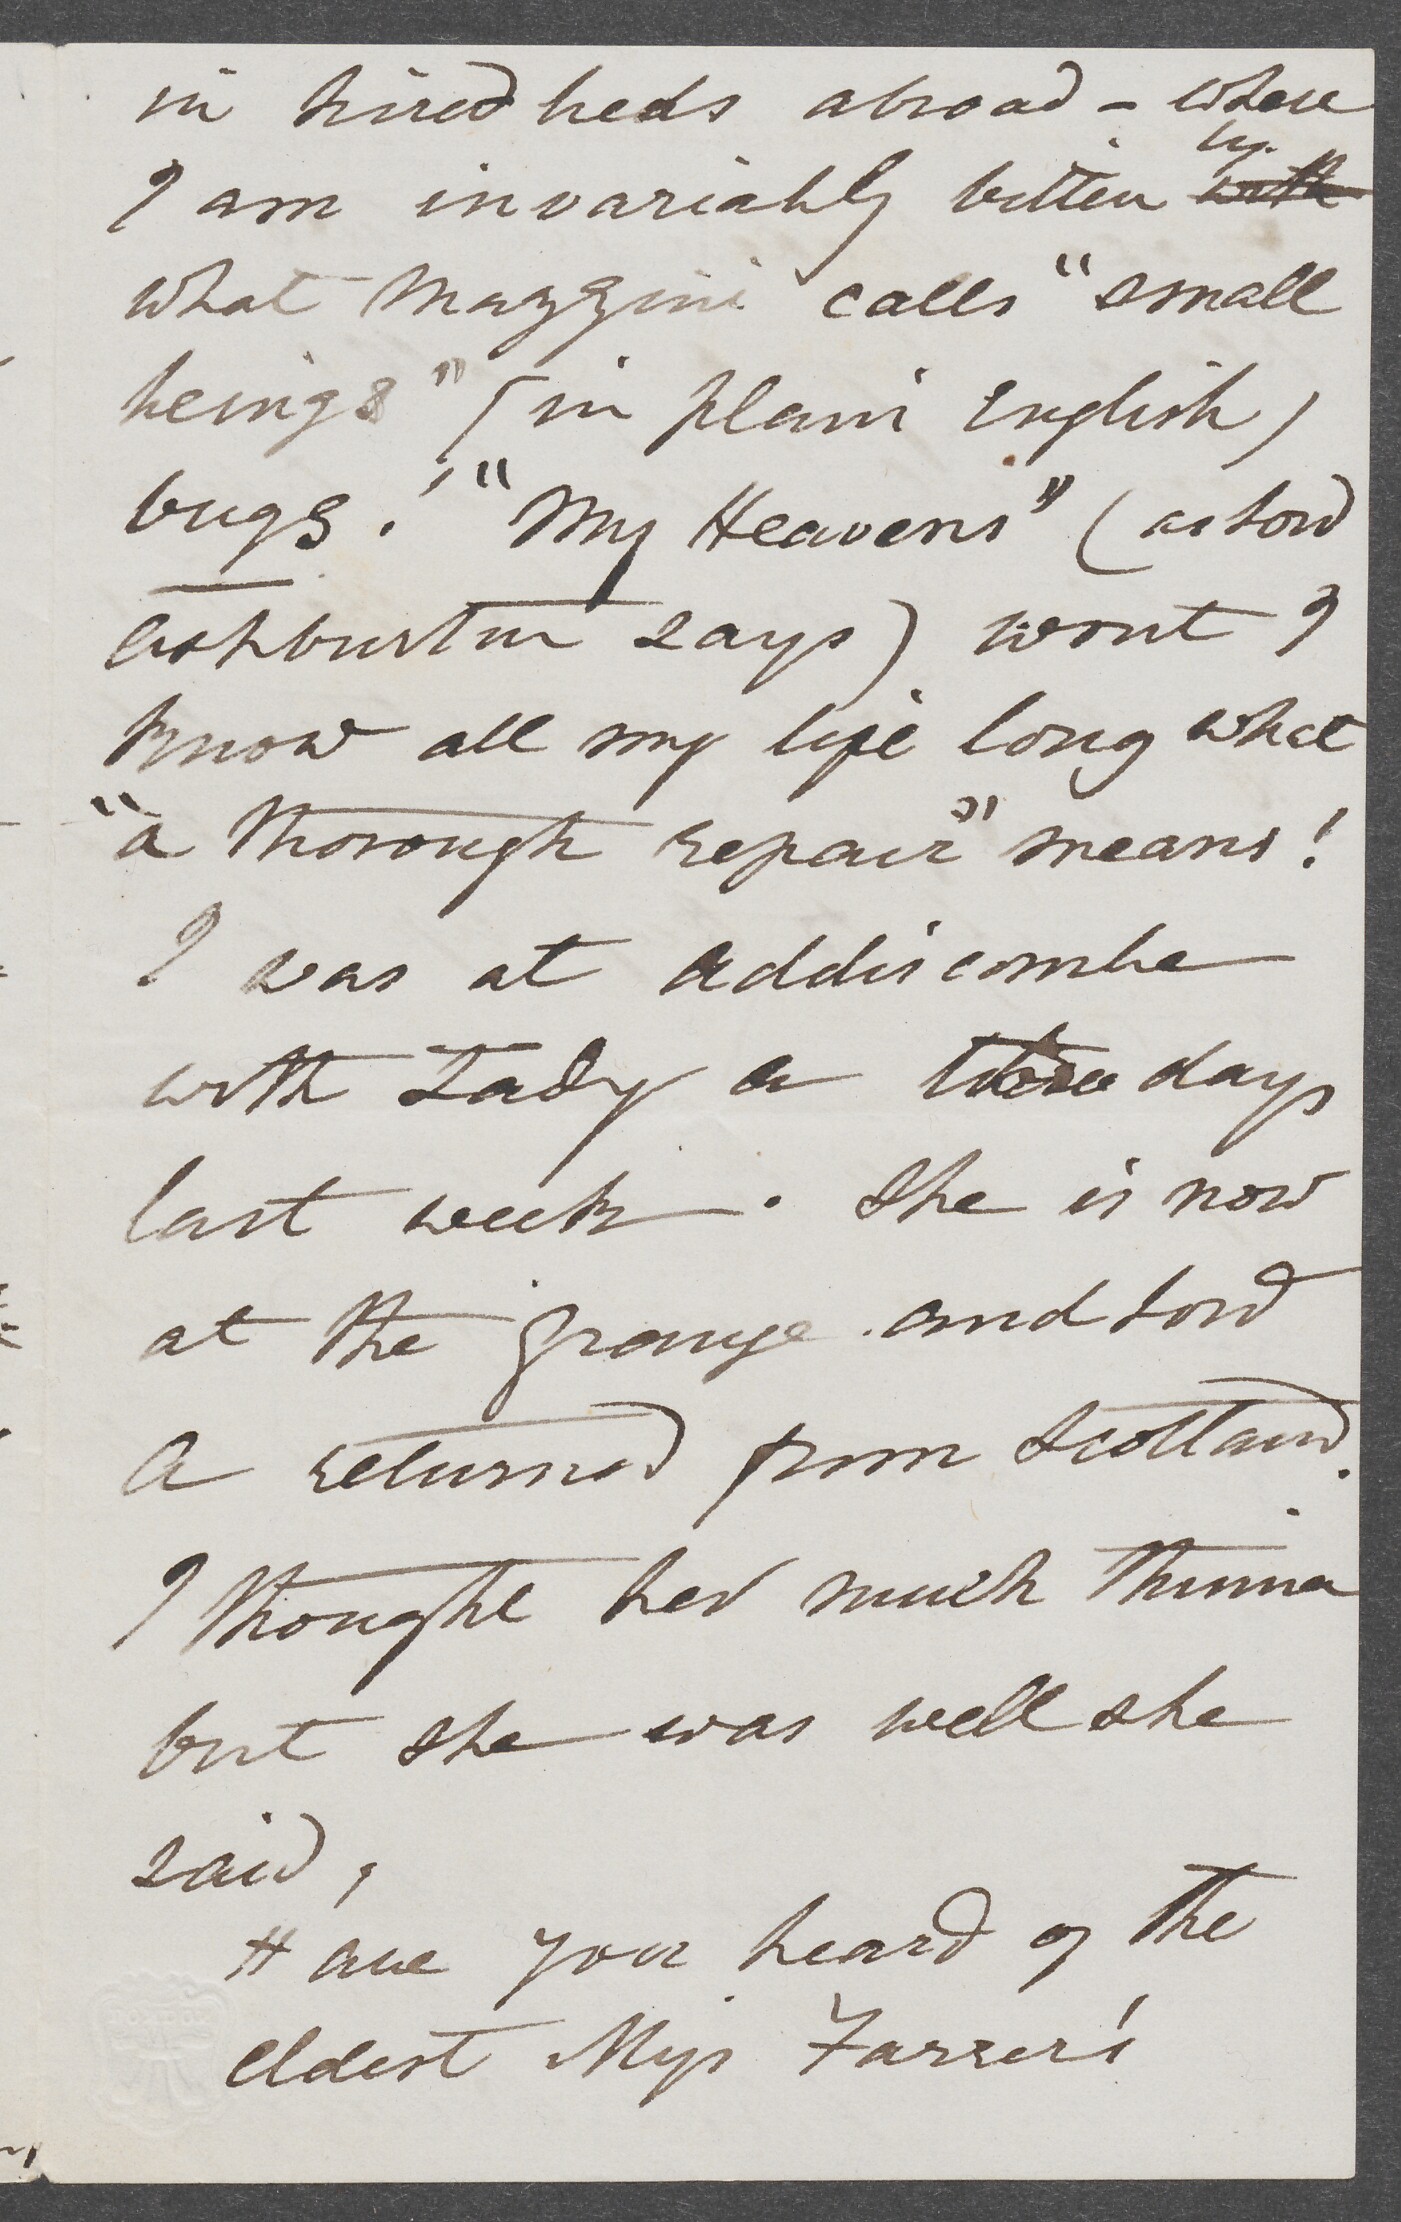 in hired beds abroad - where
I am invariably bitten by with
what Mazzini calls "small
beings" (in plain English)
bugs! "My Heavens" (as Lord
Ashburton says) wont I
know all my life long what
"a thorough repair" means!
I was at Addiscombe
with Lady A three days
last week. She is now
at the Grange and Lord
A returned from Scotland.
I thought her much thinner
but she was well she
said,
Have you heard of the
eldest Miss Farrer's